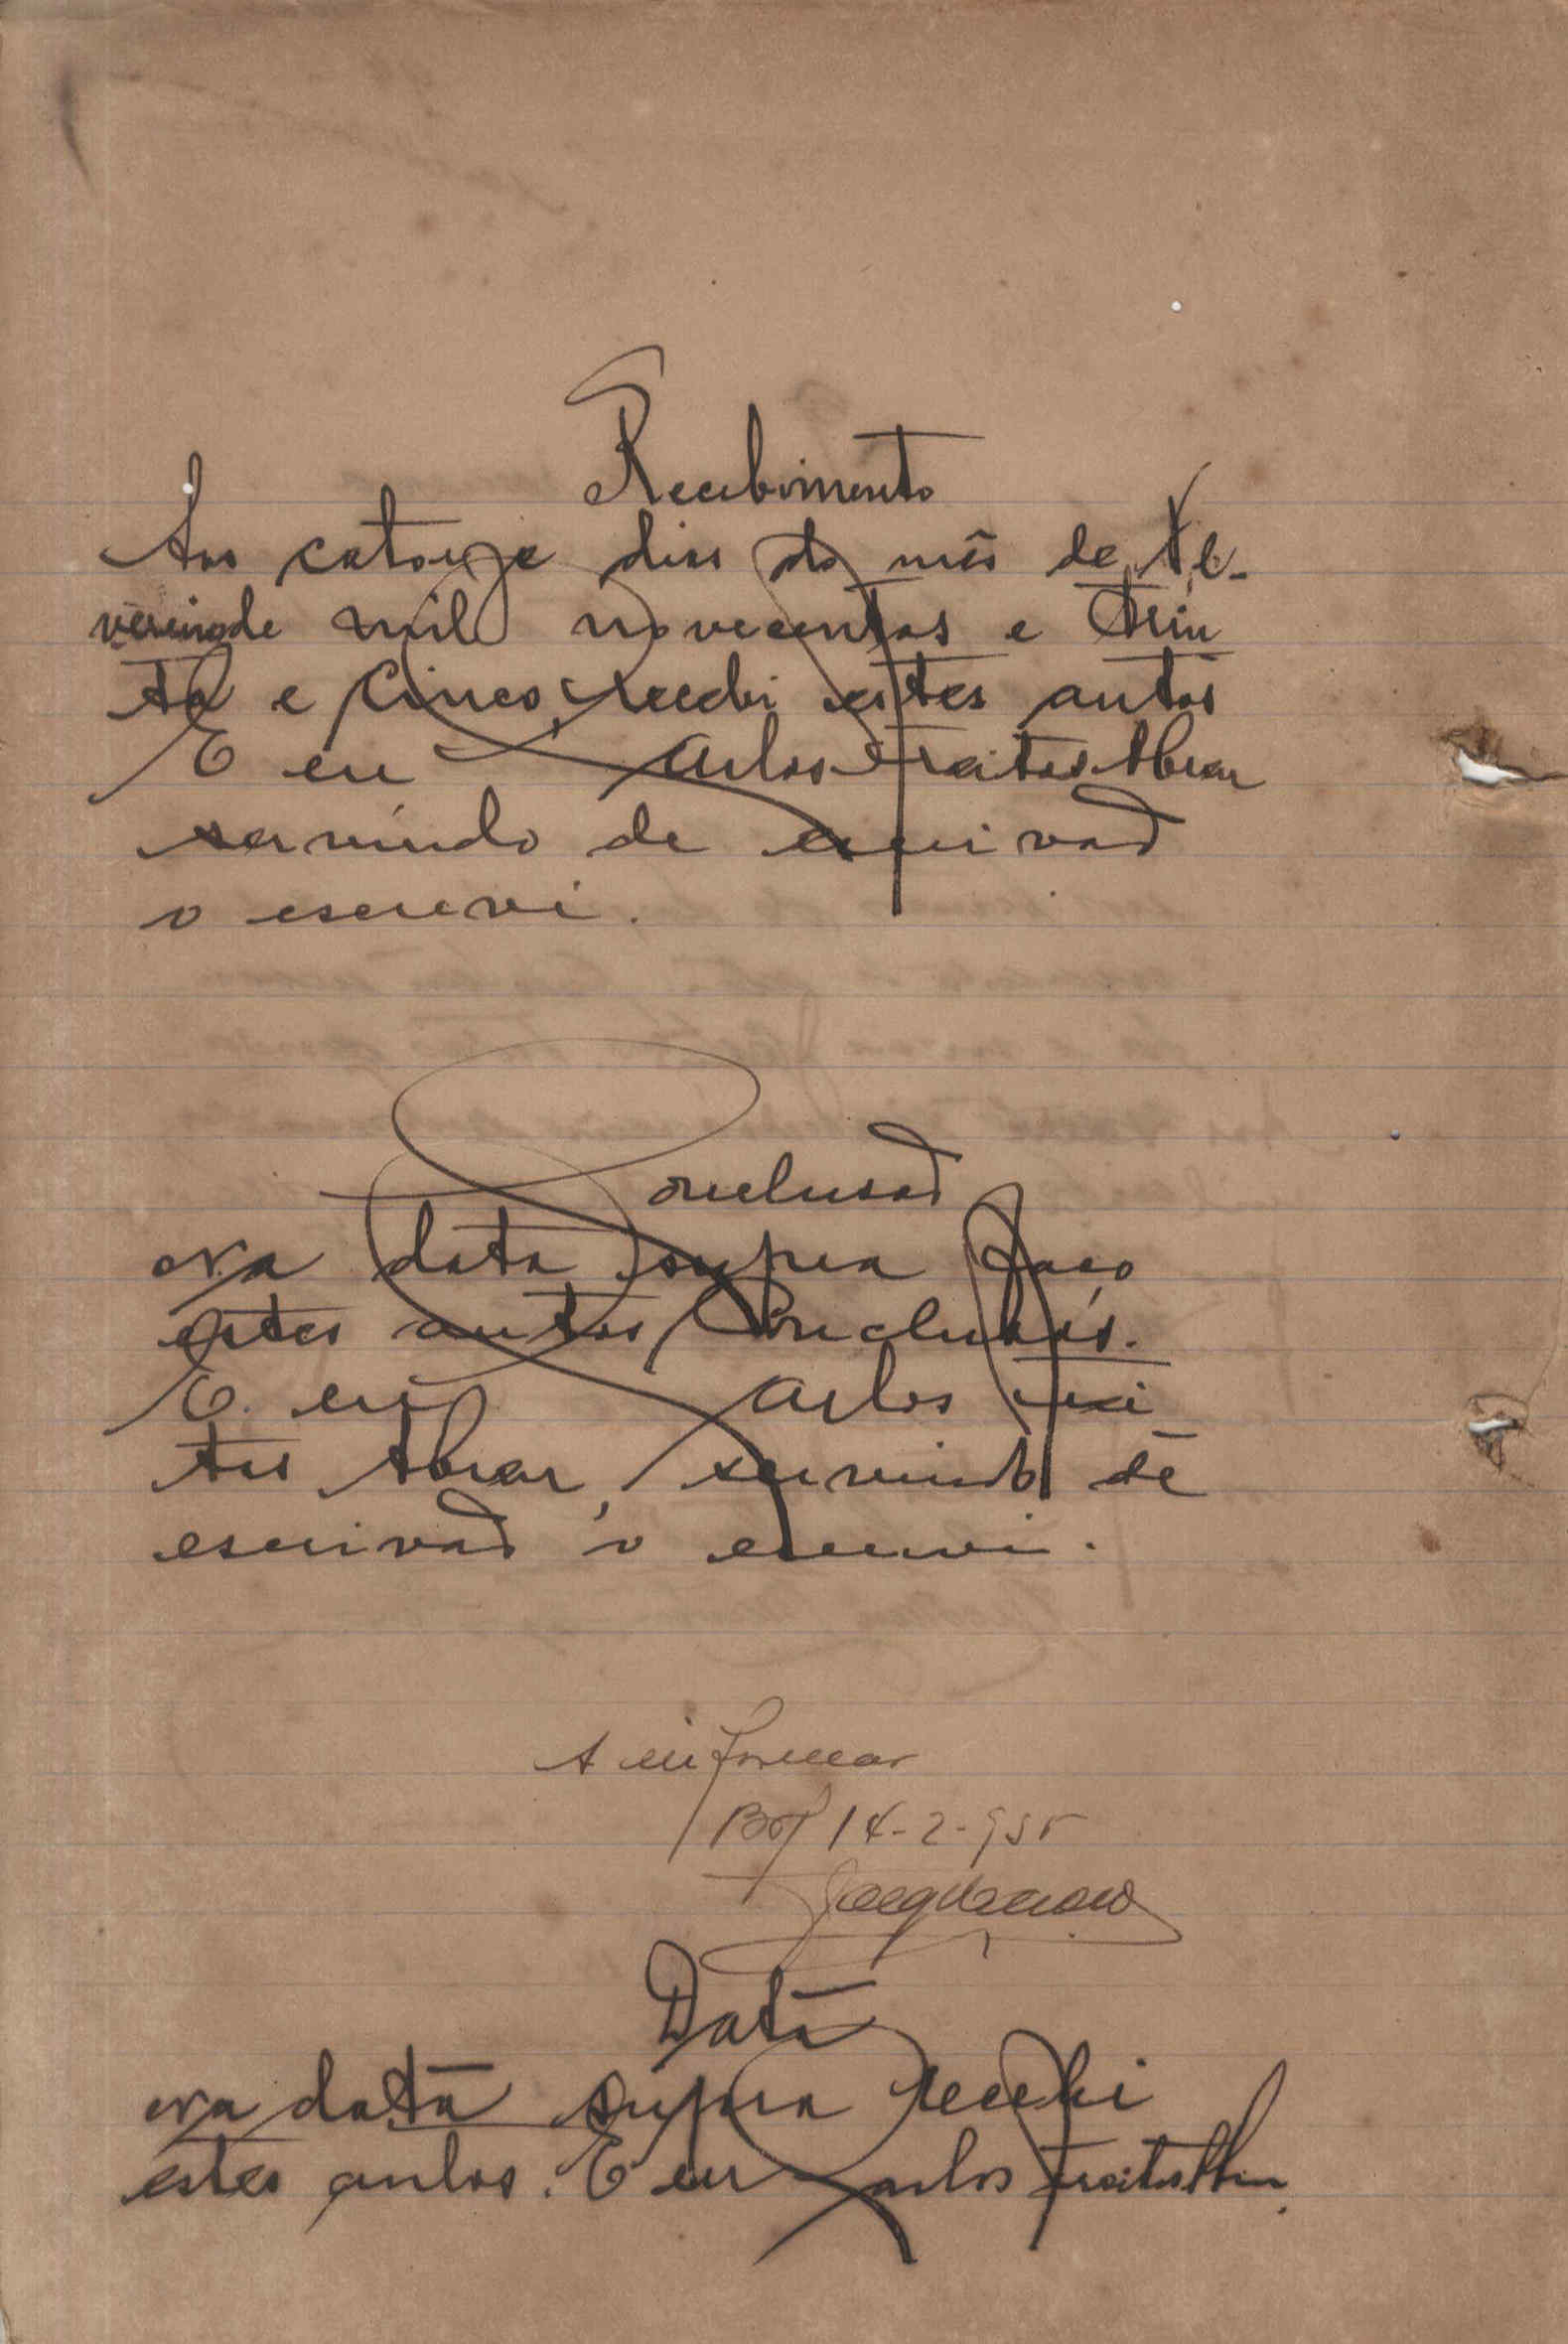 Recebimento
Aos catorze dias do mês de Fe-
vereiro de mil novecentos e trin
ta e cinco recebi estes autos
E eu Carlos Freitas Abreu
servindo de escrivaõ
o escrevi.
Conclusaõ
Na data supra faço
estes autos conclusos.
E. eu Carlos Frei
tas Abreu, servindo de
escrivaõ o escrevi.
A informar
14-2-935
Data
Na data supra recebi
estes autos. E eu Carlos Freitas Abreu.